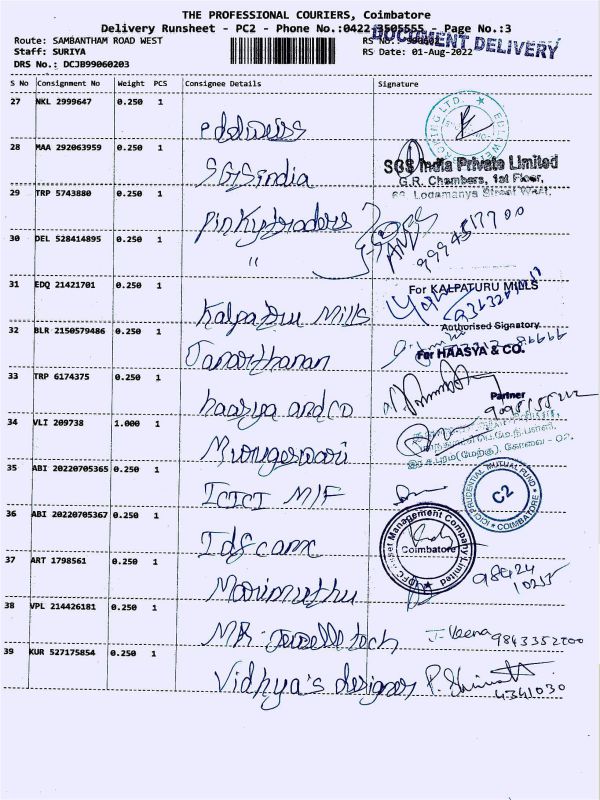 THE PROFESSIONAL COURIERS, Coimbatore
Delivery Runsheet - PC2 - Phone No.:0422 3505555 - Page No.:3
DOCUMENT DELIVERY
Route: SAMBANTHAM ROAD WEST
RS No.:
Staff: SURIYA
RS Date: 01-Aug-2022
DRS No.: DCJB99060203
S No Consignment No Weight PCS Consignee Details Signature
27 NKL 2999647 0.250 1
28 MAA 292063959 0.250 1 SGS india
SGS India Private Limited
G.R. Chambers, 1st Floor,
Lodamanya Street West,
29 TRP 5743880 0.250 1 Pinkytraders
30 DEL 528414895 0.250 1 "
31 EDQ 21421701 0.250 1 Kalpaturu Mills
For KALPATURU MILLS
Authorised Signatory
32 BLR 2150579486 0.250 1 Janarthanan
For HAASYA & CO.
Partner
33 TRP 6174375 0.250 1 haasya and co
34 VLI 209738 1.000 1 Murugeswari
35 ABI 20220705365 0.250 1 ICICI M/F
ICICI PRUDENTIAL MUTUAL FUND
C2
COIMBATORE
36 ABI 20220705367 0.250 1 Idfc amc
IDFC Asset Management Company Limited
Coimbatore
37 ART 1798561 0.250 1 Marimuthu
98424
38 VPL 214426181 0.250 1 MR Jewelle tech
J. Veena 9843352200
39 KUR 527175854 0.250 1 Vidhya's designer
4341030